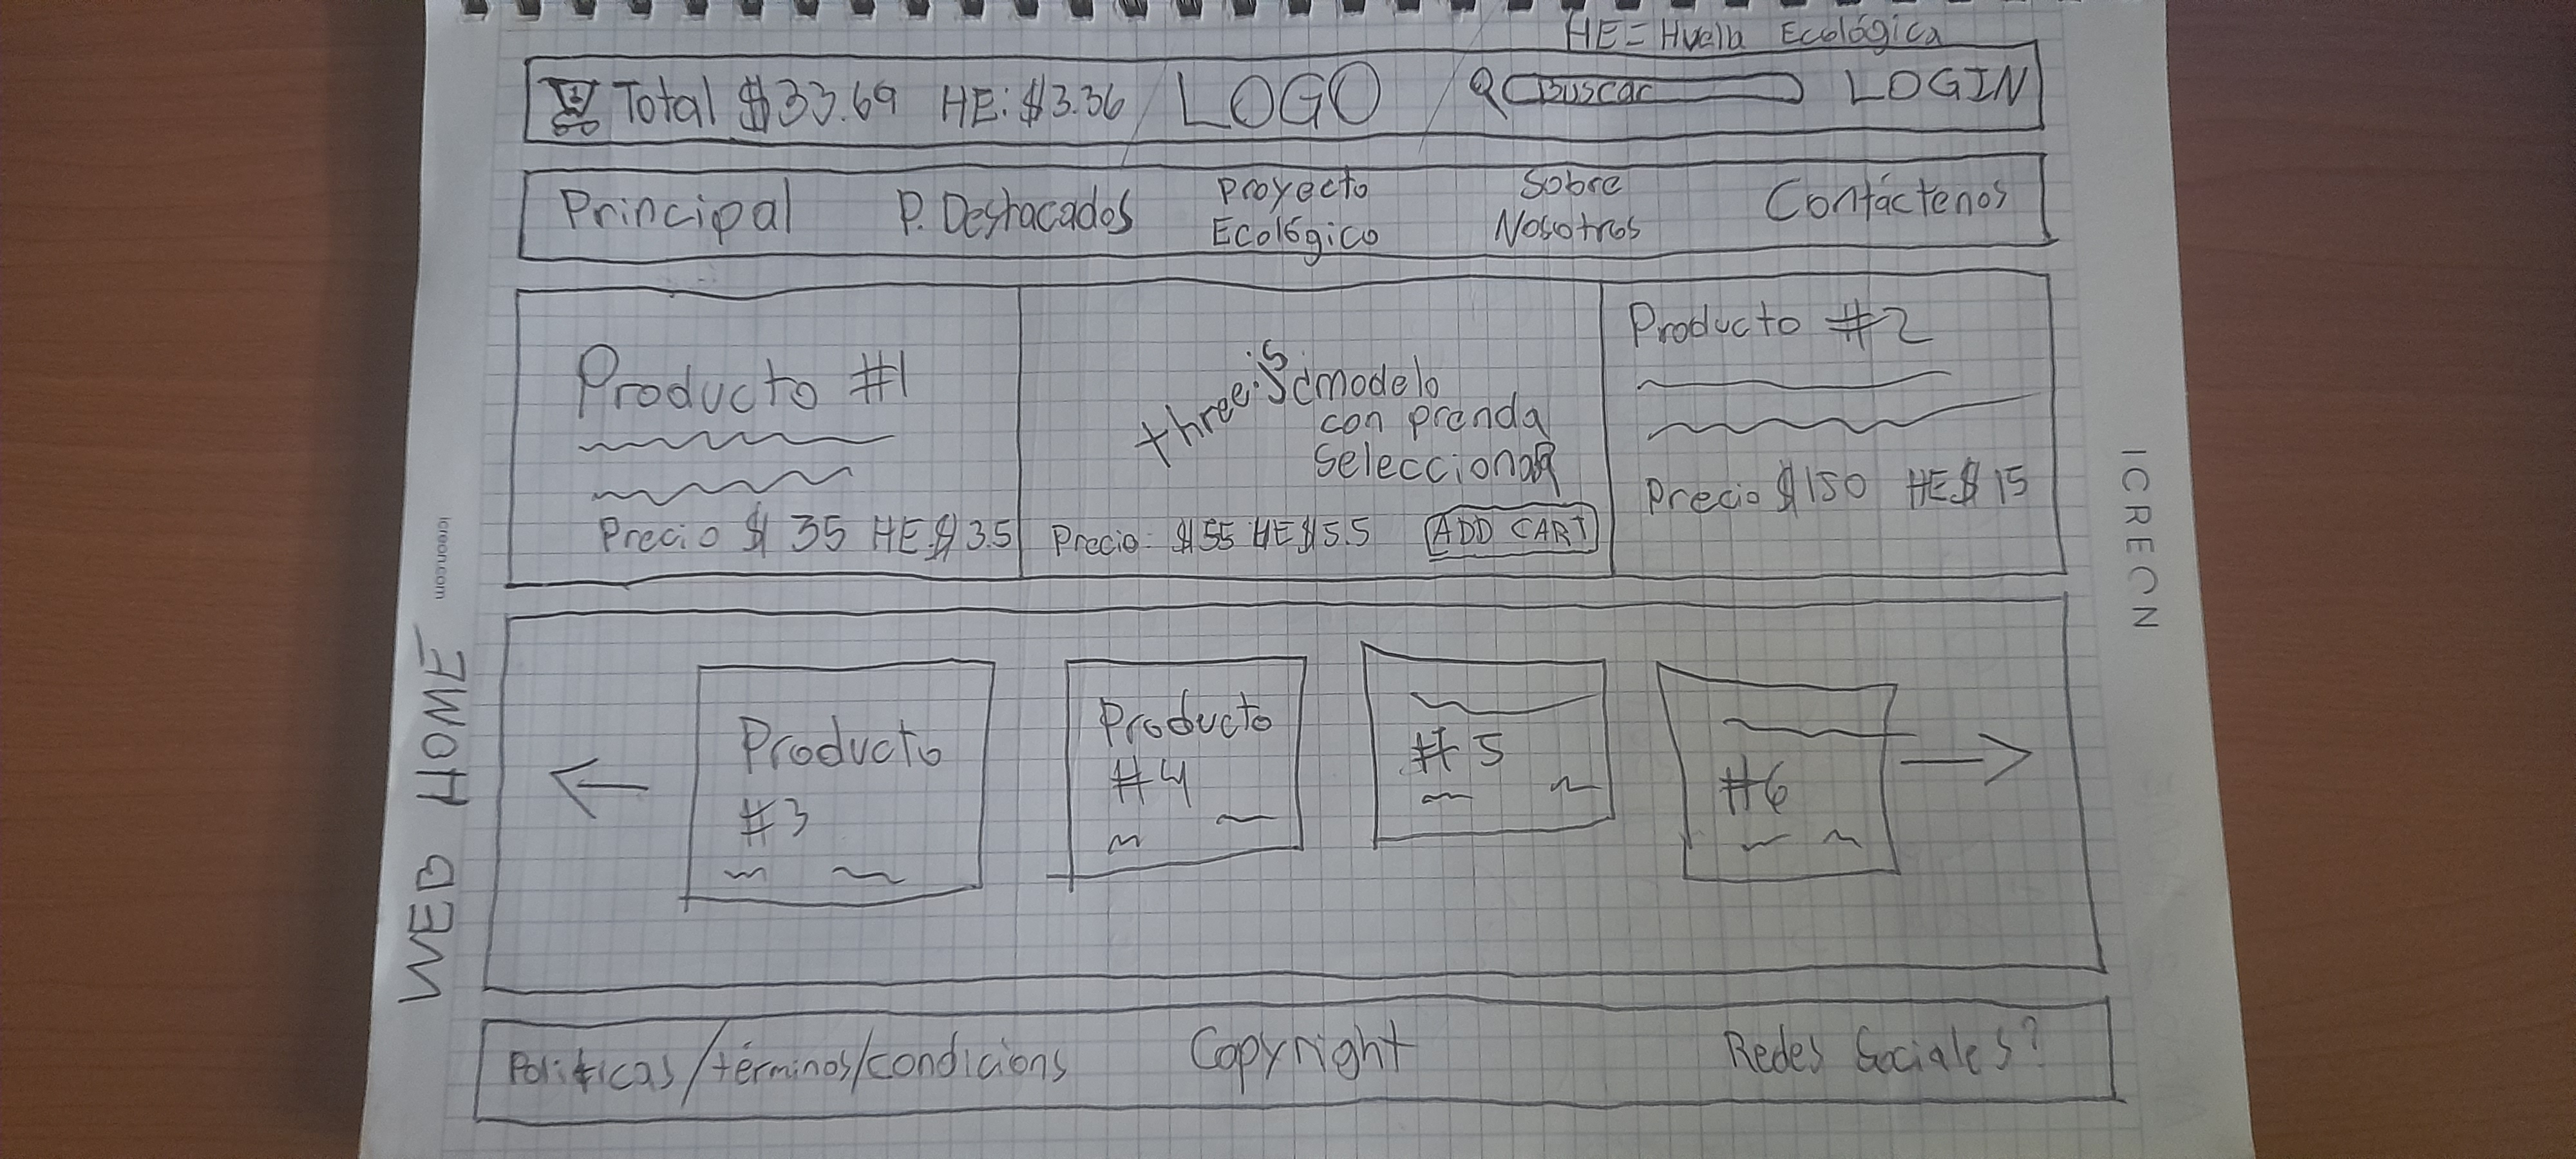 HE = Huella Ecológica
Total $33.69 HE: $3.36 LOGO Buscar LOGIN
Principal P. Destacados Proyecto Ecológico Sobre Nosotros Contáctenos
Producto #1
Precio $ 35 HE $ 3.5
three.js modelo
con prenda
seleccionada
Precio: $55 HE $5.5 ADD CART
Producto #2
Precio $150 HE $15
Producto
#3
Producto
#4
#5
#6
Políticas/términos/condicions Copyright Redes Sociales?
WEB HOME
icreon.com
ICRECN